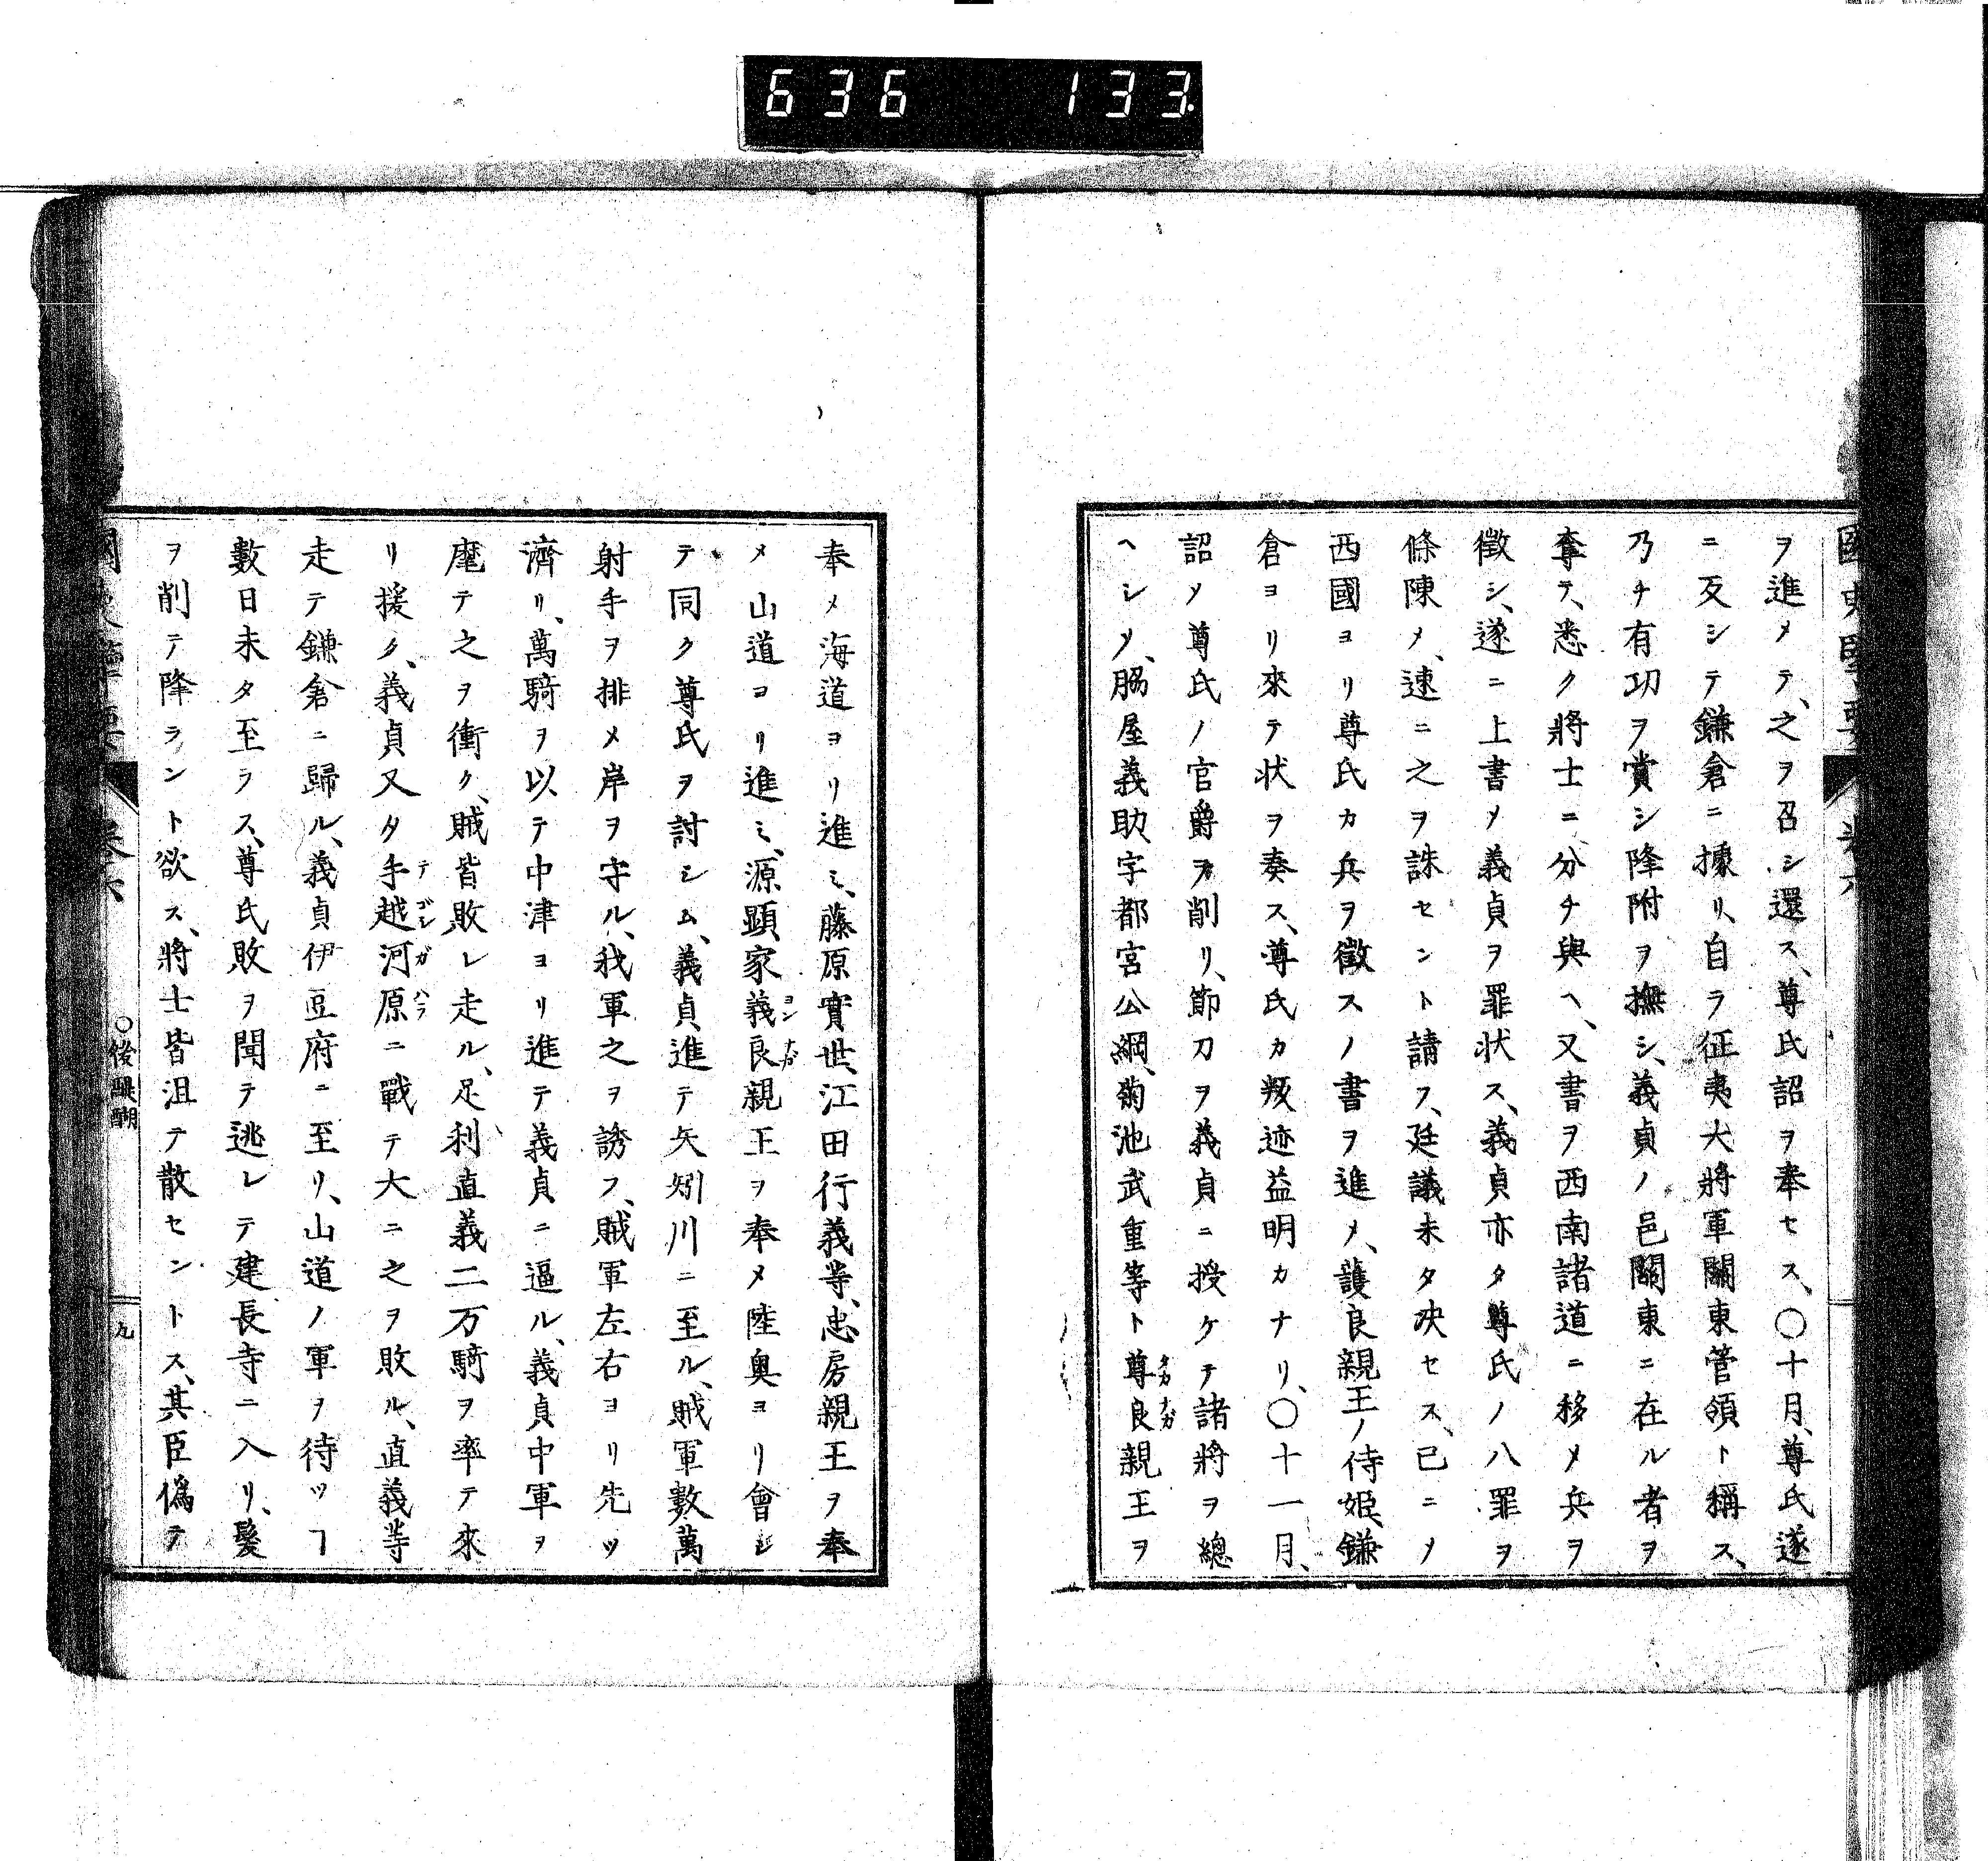 636 133.
ヲ進メテ、之ヲ召シ還ス、尊氏詔ヲ奉セス、〇十月、尊氏遂
ニ反シテ鎌倉ニ據リ、自ラ征夷大將軍關東管領ト稱ス、
乃チ有功ヲ賞シ降附ヲ撫シ、義貞ノ邑關東ニ在ル者ヲ
奪テ、悉ク將士ニ分チ與ヘ、又書ヲ西南諸道ニ移メ兵ヲ
徵シ、遂ニ上書メ義貞ヲ罪状ス、義貞亦タ尊氏ノ八罪ヲ
條陳メ、速ニ之ヲ誅セント請フ、廷議未タ决セス、已ニメ
西國ヨリ尊氏カ兵ヲ徵スノ書ヲ進メ、護良親王ノ侍姫、鎌
倉ヨリ來テ状ヲ奏ス、尊氏カ叛迹益明カナリ、〇十一月、
詔メ尊氏ノ官爵ヲ削リ、節刀ヲ義貞ニ授ケテ諸將ヲ總
ヘシメ、脇屋義助、宇都宮公綱、菊池武重等ト尊良親王ヲ
タカナガ
奉メ海道ヨリ進ミ、藤原實世、江田行義等、忠房親王ヲ奉
メ山道ヨリ進ミ、源顯家義良親王ヲ奉メ陸奥ヨリ會シ
ヨシナガ
テ同ク尊氏ヲ討シム、義貞進テ矢矧川ニ至ル、賊軍數萬
射手ヲ排メ岸ヲ守ル、我軍之ヲ誘フ、賊軍左右ヨリ先ツ
濟リ、萬騎ヲ以テ中津ヨリ進テ義貞ニ逼ル、義貞中軍ヲ
麾テ之ヲ衝ク、賊皆敗レ走ル、足利直義二万騎ヲ率テ來
リ援ク、義貞又タ手越河原ニ戰テ大ニ之ヲ敗ル、直義等
テゴシガハラ
走テ鎌倉ニ歸ル、義貞伊豆府ニ至リ、山道ノ軍ヲ待ツヿ
數日未タ至ラス、尊氏敗ヲ聞テ逃レテ建長寺ニ入リ、髮
ヲ削テ降ラント欲ス、將士皆沮テ散セントス、其臣僞テ
卷六 〇後醍醐 九